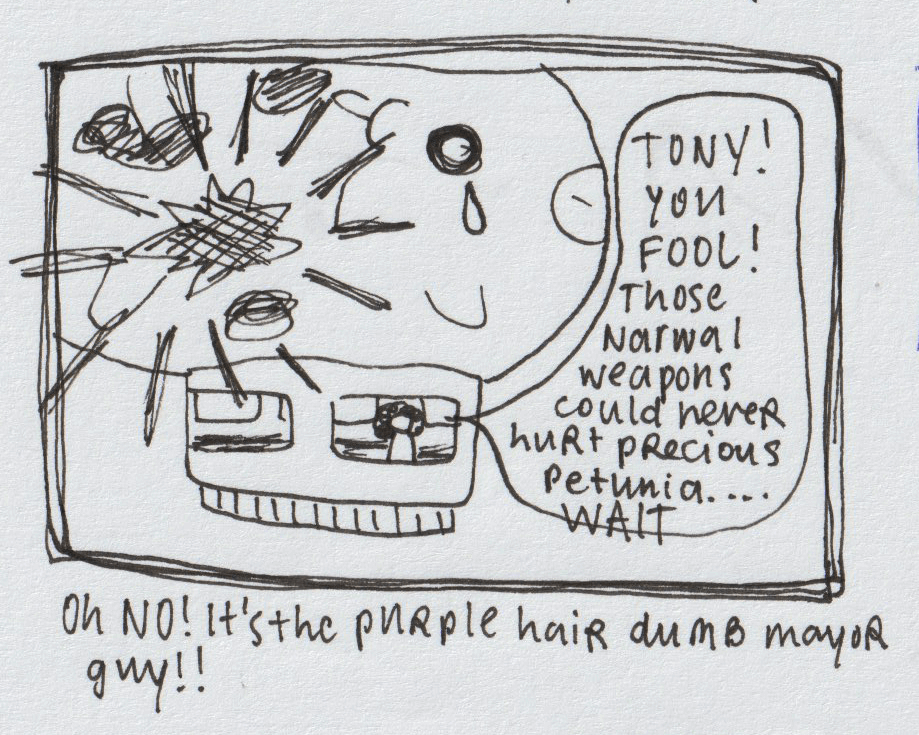 TONY!
YOU
FOOL!
Those
Narwal
weapons
could never
hurt precious
Petunia....
WAIT
Oh NO! It's the purple hair dumb mayor
guy!!